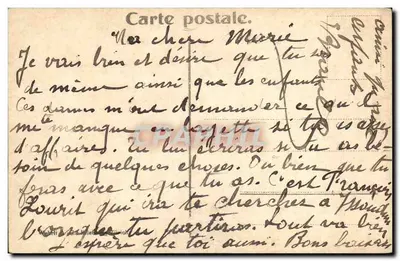 Carte postale.
Ma chere Marie
Je vais bien et désire que tu sois
de même ainsi que les enfants
Ces dames m'ont demander ce qu'il
me te manque en layette si tu as assez
d'affaires. Tu lui écriras si tu as be-
soin de quelques choses. Ou bien que tu
feras avec ce que tu as. C'est François
Lourit qui ira te cherchez à Issoudun
lorsque tu partiras. tout va bien
J'espère que toi aussi. Bons baisers
enfants